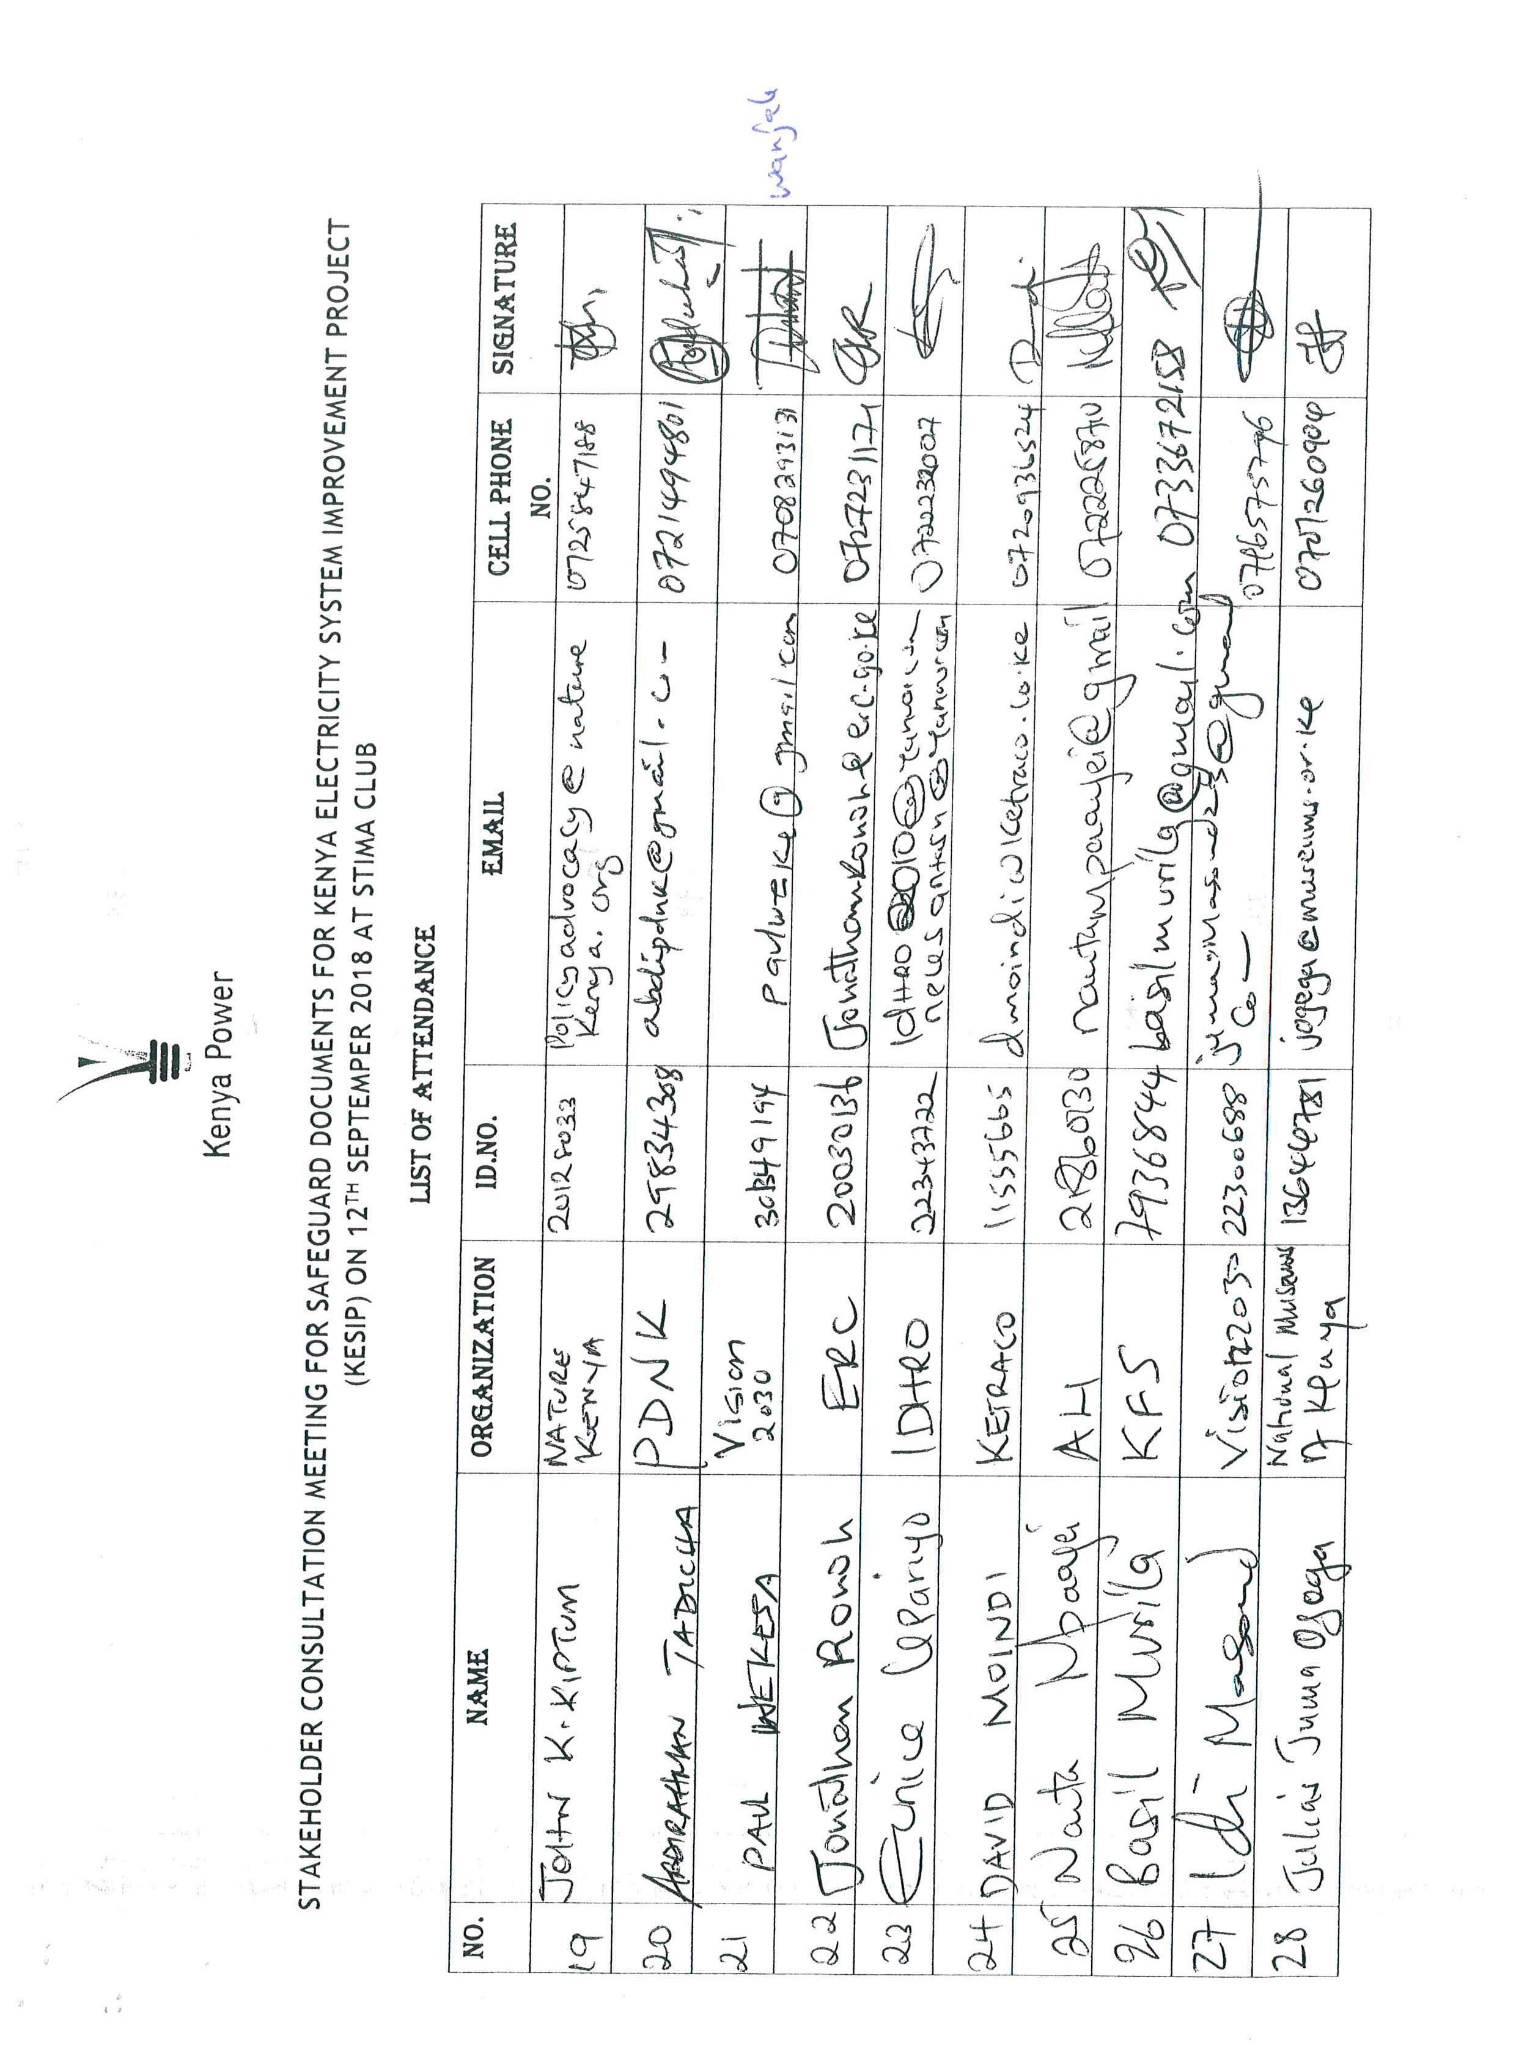 Kenya Power
STAKEHOLDER CONSULTATION MEETING FOR SAFEGUARD DOCUMENTS FOR KENYA ELECTRICITY SYSTEM IMPROVEMENT PROJECT
(KESIP) ON 12TH SEPTEMPER 2018 AT STIMA CLUB
LIST OF ATTENDANCE
NO. NAME ORGANIZATION ID.NO. EMAIL CELL PHONE NO. SIGNATURE
19 JOHN K. KIPTUM NATURE KENYA 20128033 Policyadvocacy@nature Kenya.org 0725847188
20 ABDIRAHMAN TADICHA PDNK 29834308 abdipdnk@gmail.co- 0721494801
21 PAUL WEKESA Vision 2030 30349194 paulweke@gmail.com 0708293131
wanjala
22 Jonathan Ronoh ERC 20030136 Jonathanronoh@erc.go.ke 0727231171 JKR
23 Eunice Lepariyo IDHRO 22343722 0722232007
24 DAVID MOINDI KETRACO 11555665 dmoindi@ketraco.co.ke 0720936524
25 Nanta Mpaayei AH 21860130 nantampaayei@gmail 0722258710
26 Basil Mwrila KFS 7936844 basilmurila@gmail.com 0733672158
27 Idi Masoud Vision2030 22300688 @gmail Co-
28 Julius Juma Ogega National Museums of Kenya 13644781 jogega@museums.or.ke 0707260904